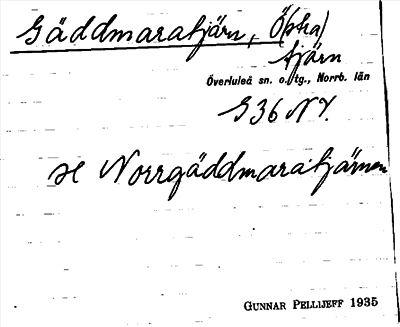 Gäddmaratjärn, Ö(stra)
tjärn
Överluleå sn. o. tg., Norrb. län
S36 NV.
se Norrgäddmaratjärnen
GUNNAR PELLIJEFF 1935